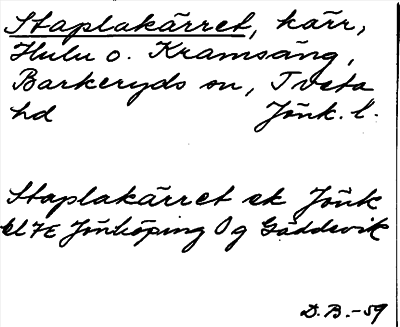 Staplakärret, kärr,
Hulu o. Kramsäng,
Barkeryds sn, Tveta
hd Jönk. l.
Staplakärret ek Jönk
bl 7E Jönköping Og Gäddevik
D.B.-59